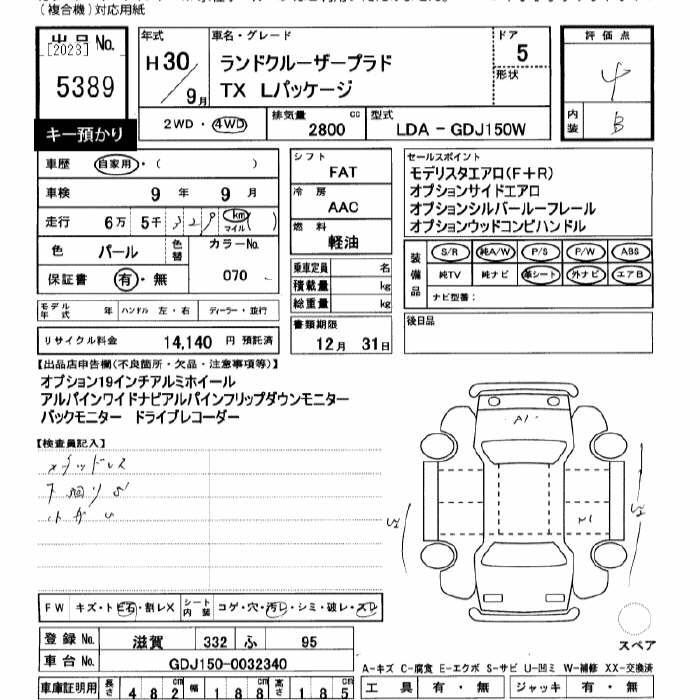 (複合機)対応用紙
出品 No.
[2023]
5389
キー預かり
年式
H30/9月
車名・グレード
ランドクルーザープラド
TX Lパッケージ
ドア
5
形状
2WD・4WD
排気量
2800 cc
型式
LDA - GDJ150W
評価点
4
内装
B
車歴 自家用・( )
車検 9 年 9 月
走行 6万 5千 329 km マイル ( )
色 パール 色替 カラーNo.
保証書 有・無 070
シフト
FAT
冷房
AAC
燃料
軽油
乗車定員 名
積載量 kg
総重量 kg
セールスポイント
モデリスタエアロ(F+R)
オプションサイドエアロ
オプションシルバールーフレール
オプションウッドコンビハンドル
装備品
S/R 純A/W P/S P/W ABS
純TV 純ナビ 革シート 外ナビ エアB
ナビ型番:
モデル年式 年 ハンドル 左・右 ディーラー・並行
リサイクル料金 14,140 円 預託済
書類期限
12月 31日
後日品
【出品店申告欄(不良箇所・欠品・注意事項等)】
オプション19インチアルミホイール
アルパインワイドナビアルパインフリップダウンモニター
バックモニター ドライブレコーダー
【検査員記入】
下廻りS
A1
FW キズ・トビ石・割レX シート内装 コゲ・穴・汚レ・シミ・破レ・スレ
登録 No. 滋賀 332 ふ 95
車台 No. GDJ150-0032340
車庫証明用 長さ 482 cm 幅 188 cm 高さ 185 cm
スペア
A-キズ C-腐食 E-エクボ S-サビ U-凹ミ W-補修 XX-交換済
工具 有・無 ジャッキ 有・無